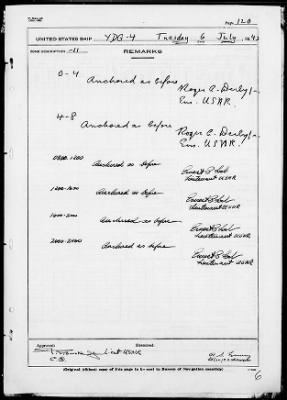 Page 120
UNITED STATES SHIP YDG-4 Tuesday 6 July, 1943
ZONE DESCRIPTION -11
REMARKS
0-4
Anchored as before
Roger C. Derby Jr.
Ens. USNR.
4-8
Anchored as before
Roger C. Derby Jr.
Ens. USNR.
0800-1200
Anchored as before
Lieutenant USNR
1200-1600
Anchored as before
Lieutenant USNR
1600-2000
Anchored as before
Lieutenant USNR
2000-2400
Anchored as before
Lieutenant USNR
Approved:
Examined:
Lieut USNR
C.O.
(Original (ribbon) copy of this page to be sent to Bureau of Navigation monthly)
6